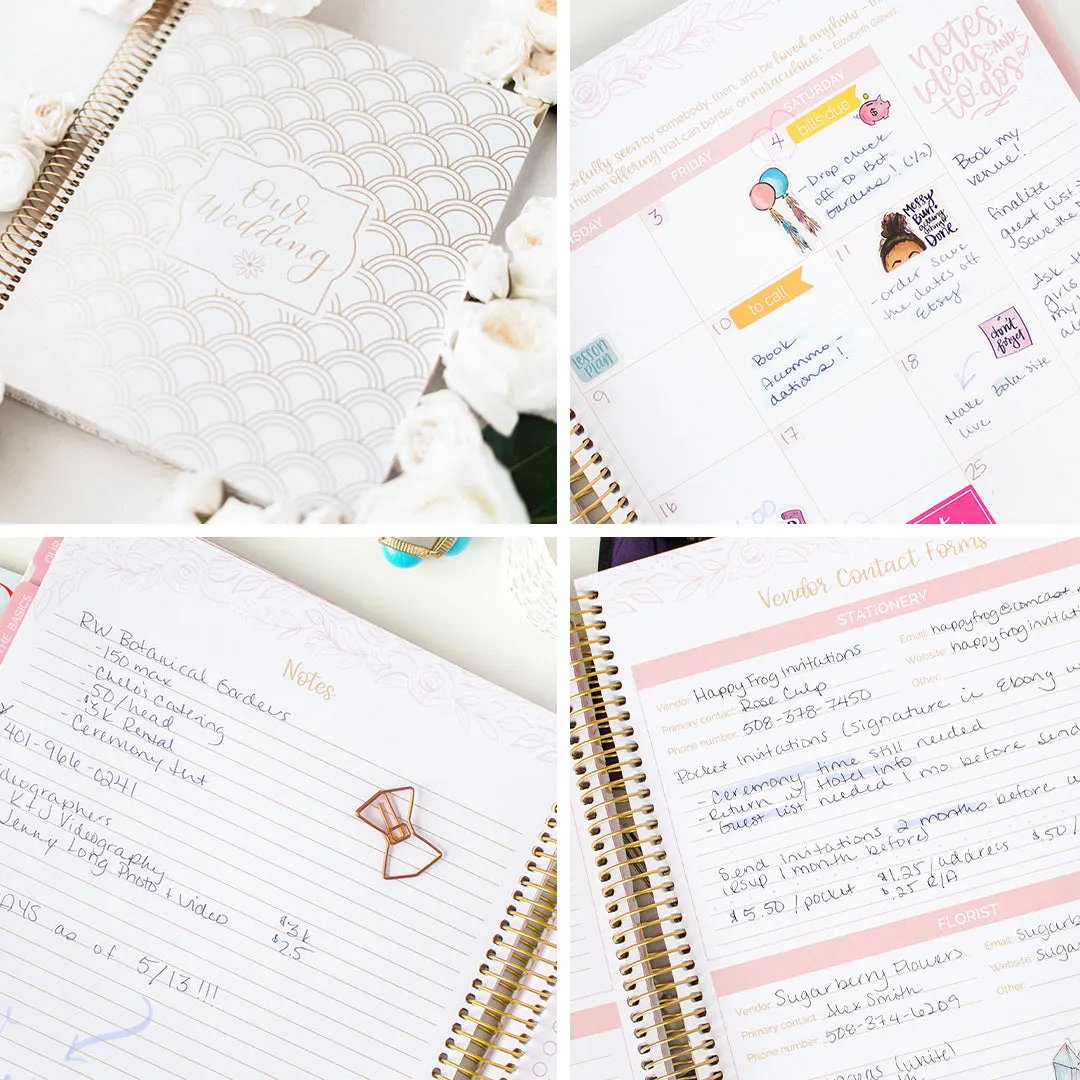 Our
Wedding
be fully seen by somebody, then, and be loved anyhow - th
human offering that can border on miraculous." - Elizabeth Gilbert
SDAY
FRIDAY
SATURDAY
notes,
ideas, AND
to do's
3
4
bills due
$
- Drop check
off to Bot.
Gardens! (1/2)
9
lesson
plan
10
to call
Book
Accommo-
dations!
11
Messy
Bun,
getting
things
Done
- order save
the dates off
Etsy
16
17
18
don't
forget
Make Zola site
live
25
Book my
venue!
finalize
guest list
Save the
Ask th
girls
my
OUR
THE BASICS
Notes
RW Botanical Gardens
- 150 max
- Chelo's Catering
- 50/head
$3k Rental
- Ceremony tent
401-966-0241
ideographers
KTJ Videography
Jenny Long Photo + Video
$3k
$2.5
AYS
as of 5/13!!!
Vendor Contact Forms
STATIONERY
Vendor: Happy Frog Invitations
Primary contact: Rose Culp
Phone number: 508-378-7450
Email: happyfrog@comcast.
Website: happyfroginvitati
Other:
Pocket Invitations (signature in Ebony w
- Ceremony time still needed
- Return w/ Hotel Info
- Guest list needed 1 mo. before send
Send invitations 2 months before w
(RSVP 1 month before)
$5.50/pocket $1.25/address $.50/
$.25 R/A
FLORIST
Vendor: Sugarberry Flowers
Primary contact: Alex Smith
Phone number: 508-374-6209
Email: sugarb
Website: suga
Other:
(white)